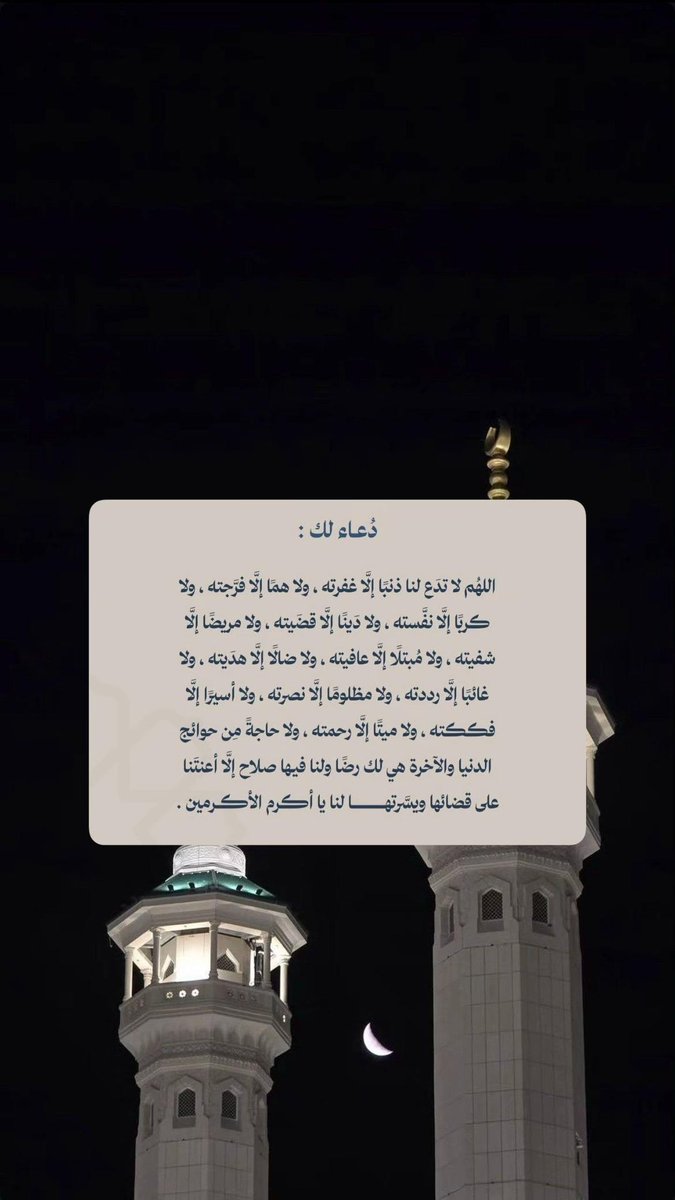 دُعـاء لك :
اللهُم لا تدَع لنا ذنبًا إلَّا غفرته ، ولا همًا إلَّا فرَّجته ، ولا
كربًا إلَّا نفَّسته ، ولا دَينًا إلَّا قضَيته ، ولا مريضًا إلَّا
شفيته ، ولا مُبتلًا إلَّا عافيته ، ولا ضالًا إلَّا هدَيته ، ولا
غائبًا إلَّا رددته ، ولا مظلومًا إلَّا نصرته ، ولا أسيرًا إلَّا
فككته ، ولا ميتًا إلَّا رحمته ، ولا حاجةً مِن حوائج
الدنيا والآخرة هي لك رضًا ولنا فيها صلاح إلَّا أعنتَنا
على قضائها ويسَّرتهـــــا لنا يا أكرم الأكـرمين .